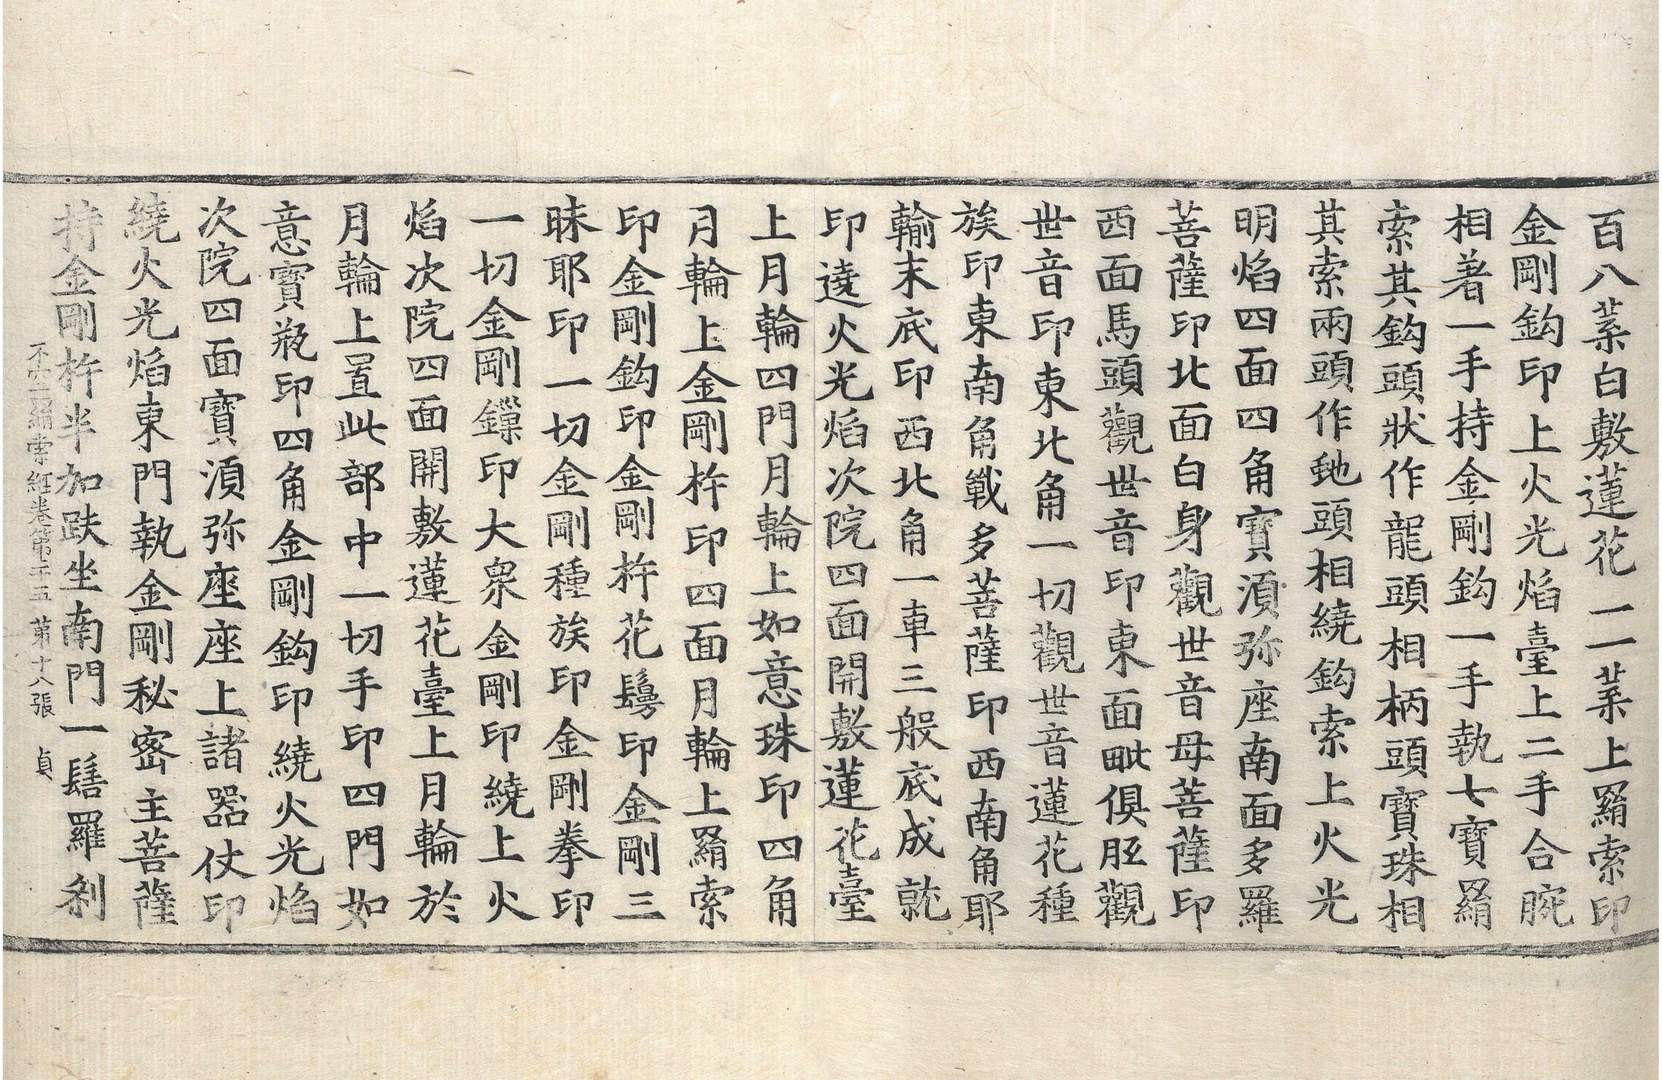 百八葉白敷蓮花一一葉上羂索印
金剛鈎印上火光焰臺上二手合腕
相著一手持金剛鈎一手執七寶羂
索其鈎頭狀作龍頭相柄頭寶珠相
其索兩頭作虵頭相繞鈎索上火光
明焰四面四角寶湏弥座南面多羅
菩薩印北面白身觀世音母菩薩印
西面馬頭觀世音印東面毗俱胝觀
世音印東北角一切觀世音蓮花種
族印東南角戰多菩薩印西南角耶
輸末底印西北角一車三般底成就
印遶火光焰次院四面開敷蓮花臺
上月輪四門月輪上如意珠印四角
月輪上金剛杵印四面月輪上羂索
印金剛鈎印金剛杵花鬘印金剛三
昧耶印一切金剛種族印金剛拳印
一切金剛鏁印大衆金剛印繞上火
焰次院四面開敷蓮花臺上月輪於
月輪上置此部中一切手印四門如
意寶瓶印四角金剛鈎印繞火光焰
次院四面寶湏弥座座上諸器仗印
繞火光焰東門執金剛秘密主菩薩
持金剛杵半加趺坐南門一髻羅刹
不空羂索經卷第二十五 第十八張 貞